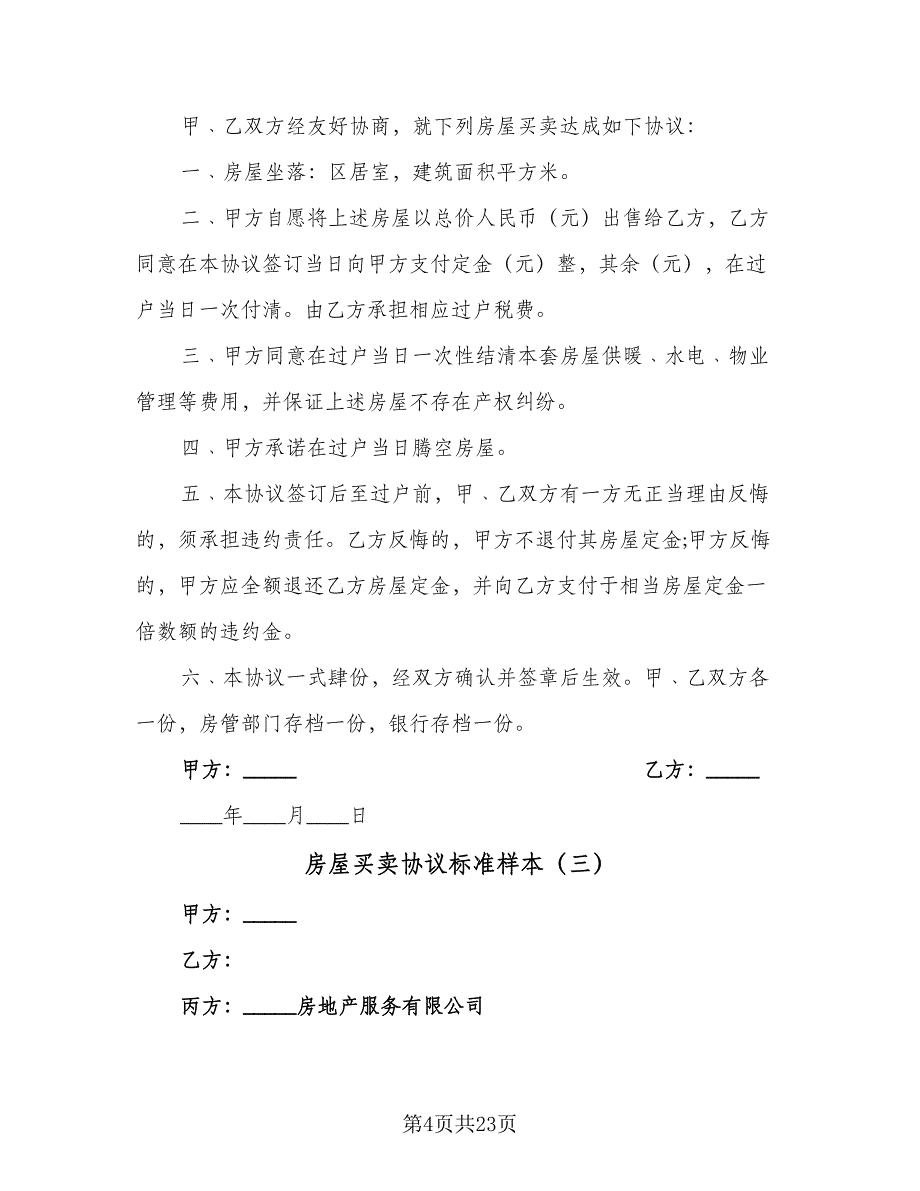 甲﹑乙双方经友好协商，就下列房屋买卖达成如下协议：
一﹑房屋坐落：区居室，建筑面积平方米。
二﹑甲方自愿将上述房屋以总价人民币（元）出售给乙方，乙方
同意在本协议签订当日向甲方支付定金（元）整，其余（元），在过
户当日一次付清。由乙方承担相应过户税费。
三﹑甲方同意在过户当日一次性结清本套房屋供暖﹑水电﹑物业
管理等费用，并保证上述房屋不存在产权纠纷。
四﹑甲方承诺在过户当日腾空房屋。
五﹑本协议签订后至过户前，甲﹑乙双方有一方无正当理由反悔
的，须承担违约责任。乙方反悔的，甲方不退付其房屋定金;甲方反悔
的，甲方应全额退还乙方房屋定金，并向乙方支付于相当房屋定金一
倍数额的违约金。
六﹑本协议一式肆份，经双方确认并签章后生效。甲﹑乙双方各
一份，房管部门存档一份，银行存档一份。
甲方：_____ 乙方：_____
____年____月____日
房屋买卖协议标准样本（三）
甲方：_____
乙方：
丙方：_____房地产服务有限公司
第4页共23页